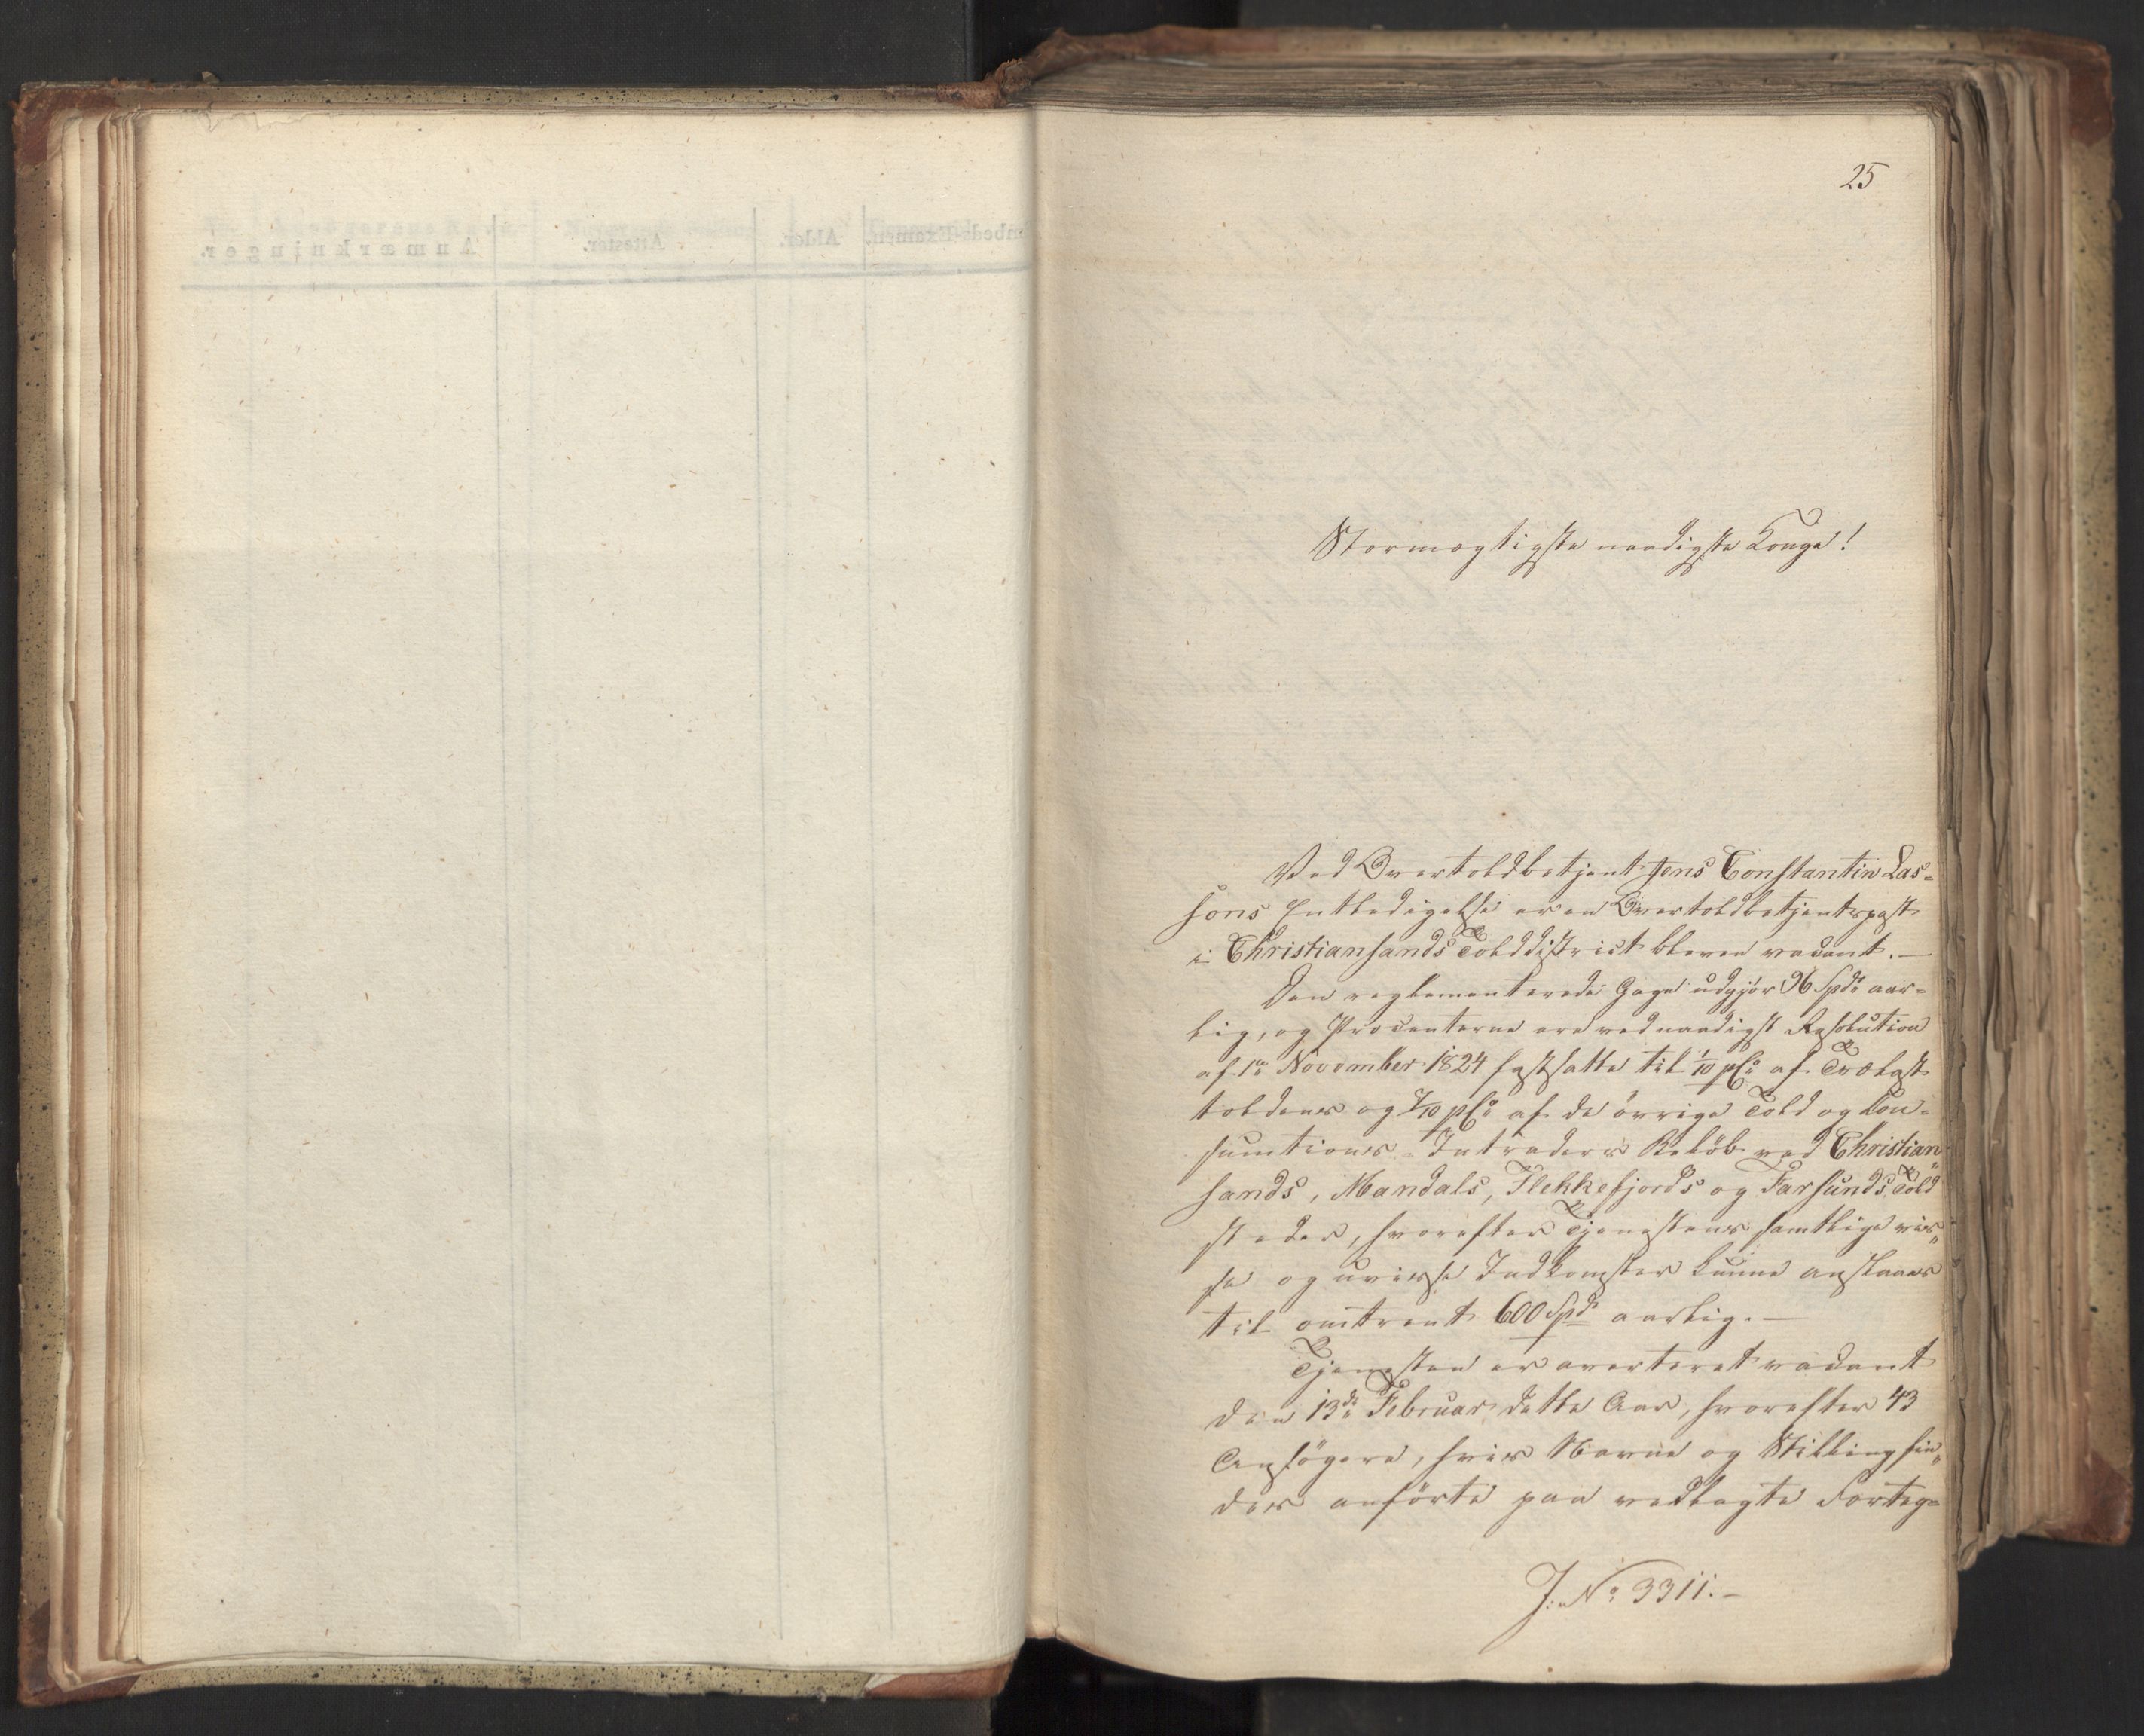 25
Stormægtigste naadigste Konge!
Ved Overtoldbetjent Jens Constantin Las=
sons Entledigelse er en Overtoldbetjentpost
i Christiansands Tolddistrict bleven vacant.—
Den reglementerede Gage udgjør 96 Spd aar=
lig, og Procenterne ere ved naadigst Resolution
af 1e November 1824 fastsatte til 1/10 pC af Trælast
toldens og 7/10 pC af de övrige Told og Con=
sumtions-Intraders Beløb ved Christian„
sands, Mandals, Flekkefjords og Farsunds Told
steder, hvorefter Tjenestens samtlige vis„
se og uvisse Indkomster kunne anslaaes
til omtrent 600 Spd aarlig.—
Tjenesten er averteret vacant
den 13de Februar dette Aar, hvorefter 43
Ansögere, hvis Navne og Stilling fin„
des anförte paa vedlagte Forteg=
J. No 3311.—
Anmærkninger.
Attester.
Alder.